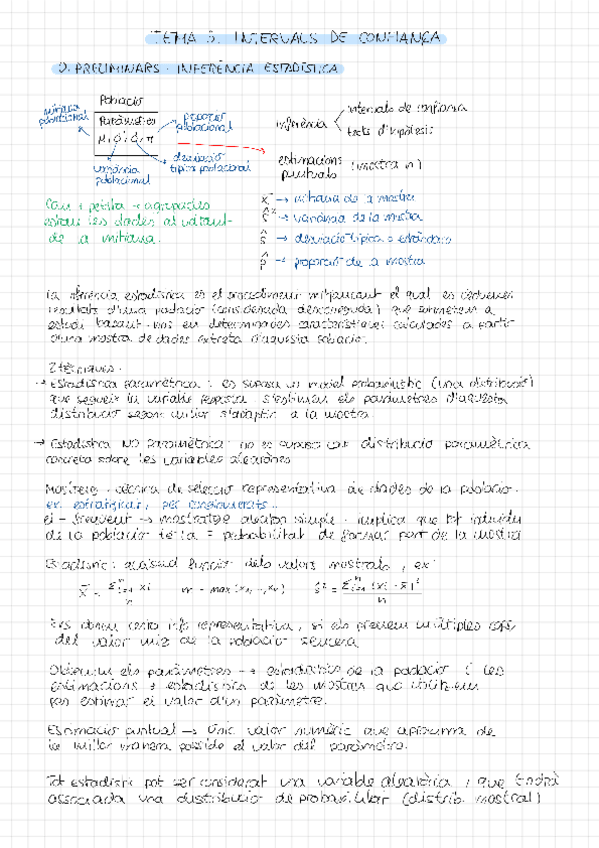 TEMA 5. INTERVALS DE CONFIANÇA
0. PRELIMINARS. INFERÈNCIA ESTADÍSTICA
Població
mitjana poblacional
Paràmetres
proporció poblacional
variància poblacional
desviació típica poblacional
inferència
intervals de confiança
tests d'hipòtesis
estimacions puntuals (mostra n)
Com + petita → agrupades
estan les dades al voltant
de la mitjana.
x̄ → mitjana de la mostra
→ variància de la mostra
ŝ → desviació típica o estàndard
p̂ → proporció de la mostra
la inferència estadística es el procediment mitjançant el qual es obtenen
resultats d'una població (considerada desconeguda) que sotmetem a
estudi basant-nos en determinades característiques calculades a partir
d'una mostra de dades extreta d'aquesta població.
2 tècniques.
→ Estadística paramètrica: es suposa un model probabilístic (una distribució)
que segueix la variable resposta s'estimen els paràmetres d'aquesta
distribució segons millor s'adaptin a la mostra.
→ Estadística NO Paramètrica: no es suposa cap distribució paramètrica
concreta sobre les variables aleatòries
Mostreig: tècnica de selecció representativa de dades de la població.
ex. estratificat, per conglomerats...
el + freqüent → mostratge aleatori simple. implica que tot individu
de la població té la = probabilitat de formar part de la mostra
Estadístic: qualsevol funció dels valors mostrals, ex:
del valor de la població sencera
Obtenim els paràmetres → estadístics de la població i les
estimacions → estadístics de les mostres que utilitzem
per estimar el valor d'un paràmetre.
Estimació puntual → Únic valor numèric que aproxima de
la millor manera possible el valor del paràmetre.
Tot estadístic pot ser considerat una variable aleatòria, que tindrà
associada una distribució de probabilitat (distrib. mostral)